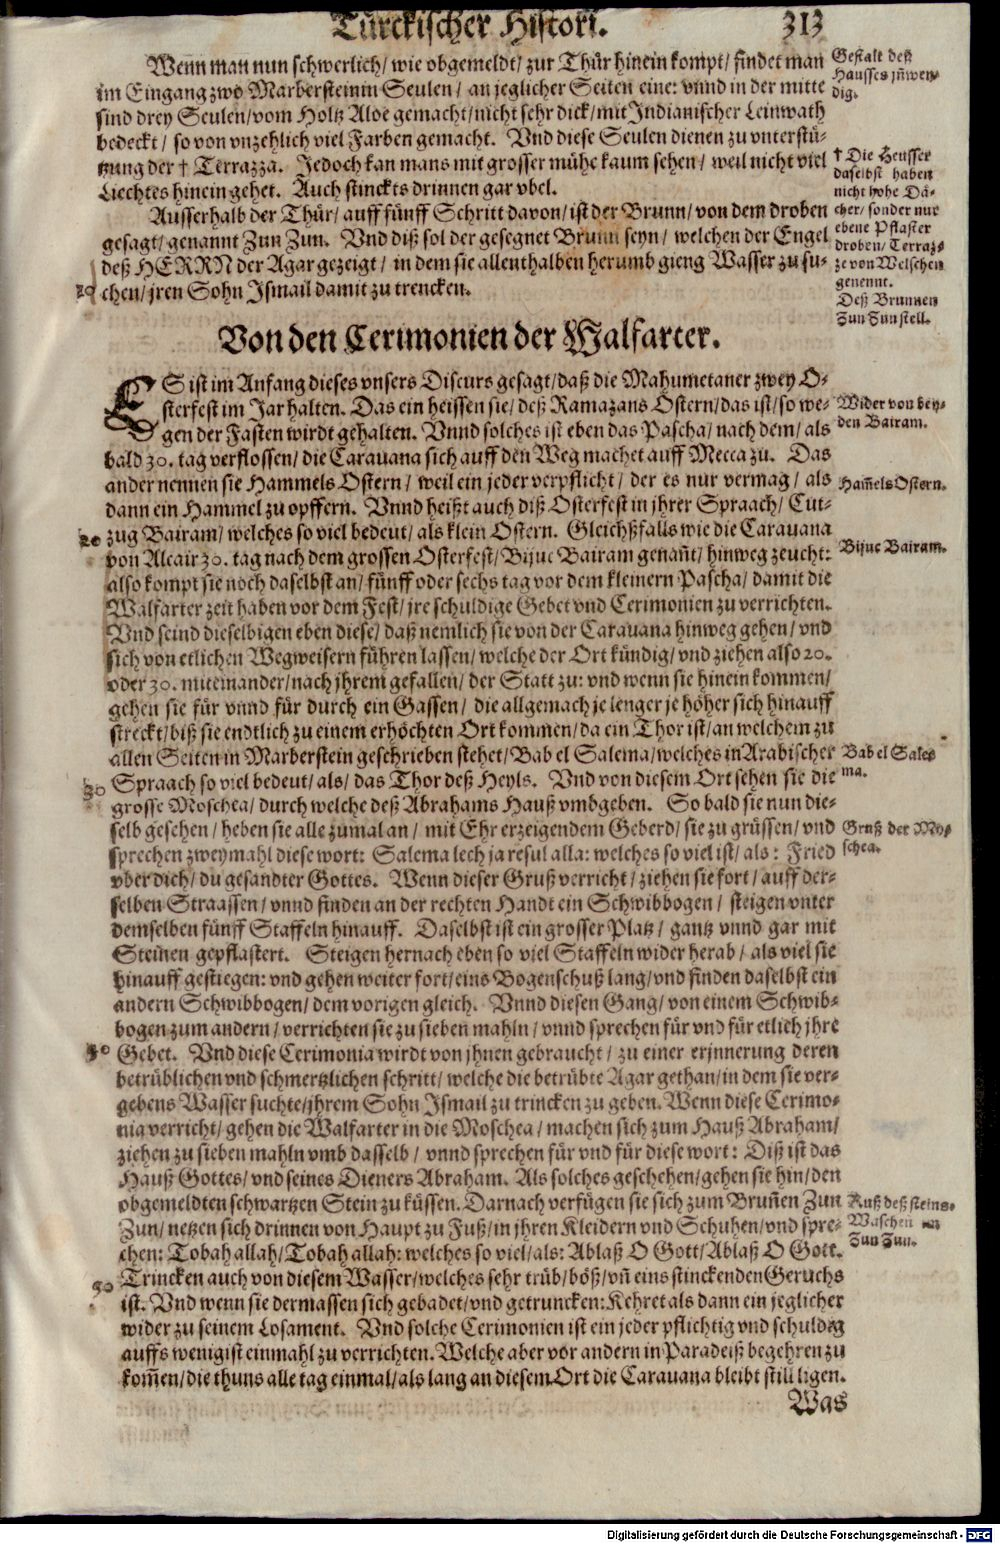 Türckischer Histori. 313
Wenn man nun schwerlich/ wie obgemeldt/ zur Thür hinein kompt/ findet man
im Eingang zwo Marbersteinin Seulen/ an jeglicher Seiten eine: vnnd in der mitte
sind drey Seulen/ vom Holtz Aloe gemacht/ nicht sehr dick/ mit Indianischer Leinwath
bedeckt/ so von vnzehlich viel Farben gemacht. Vnd diese Seulen dienen zu vnterstü-
tzung der † Terrazza. Jedoch kan mans mit grosser mühe kaum sehen/ weil nicht viel
Liechtes hinein gehet. Auch stinckts drinnen gar vbel.
Ausserhalb der Thür/ auff fünff Schritt davon/ ist der Brunn/ von dem droben
gesagt/ genannt Zun Zun. Vnd diß sol der gesegnet Brunn seyn/ welchen der Engel
deß HERRN der Agar gezeigt/ in dem sie allenthalben herumb gieng Wasser zu su-
chen/ jren Sohn Ismail damit zu trencken.
Gestalt deß
Hausses jñwen-
dig.
† Die Heusser
daselbst haben
nicht hohe Dä-
cher/ sonder nur
ebene Pflaster
droben/ Terraz-
ze von Welschen
genennt.
Deß Brunnen
Zun Zun stell.
Von den Cerimonien der Walfarter.
ES ist im Anfang dieses vnsers Discurs gesagt/ daß die Mahumetaner zwey O-
sterfest im Jar halten. Das ein heissen sie/ deß Ramazans Ostern/ das ist/ so we-
gen der Fasten wirdt gehalten. Vnnd solches ist eben das Pascha/ nach dem/ als
bald 30. tag verflossen/ die Carauana sich auff den Weg machet auff Mecca zu. Das
ander nennen sie Hammels Ostern/ weil ein jeder verpflicht/ der es nur vermag/ als
dann ein Hammel zu opffern. Vnnd heißt auch diß Osterfest in jhrer Spraach/ Cut-
zug Bairam/ welches so viel bedeut/ als klein Ostern. Gleichßfalls wie die Carauana
von Alcair 30. tag nach dem grossen Osterfest/ Bijuc Bairam genañt/ hinweg zeucht:
also kompt sie noch daselbst an/ fünff oder sechs tag vor dem kleinern Pascha/ damit die
Walfarter zeit haben vor dem Fest/ jre schuldige Gebet vnd Cerimonien zu verrichten.
Vnd seind dieselbigen eben diese/ daß nemlich sie von der Carauana hinweg gehen/ vnd
sich von etlichen Wegweisern führen lassen/ welche der Ort kündig/ vnd ziehen also 20.
oder 30. miteinander/ nach jhrem gefallen/ der Statt zu: vnd wenn sie hinein kommen/
gehen sie für vnnd für durch ein Gassen/ die allgemach je lenger je höher sich hinauff
streckt/ biß sie endtlich zu einem erhöchten Ort kommen/ da ein Thor ist/ an welchem zu
allen Seiten in Marberstein geschrieben stehet/ Bab el Salema/ welches in Arabischer
Spraach so viel bedeut/ als/ das Thor deß Heyls. Vnd von diesem Ort sehen sie die
grosse Moschea/ durch welche deß Abrahams Hauß vmbgeben. So bald sie nun die-
selb gesehen/ heben sie alle zumal an/ mit Ehr erzeigendem Geberd/ sie zu grüssen/ vnd
sprechen zweymahl diese wort: Salema lech ja resul alla: welches so viel ist/ als: Fried
vber dich/ du gesandter Gottes. Wenn dieser Gruß verricht/ ziehen sie fort/ auff der-
selben Straassen/ vnnd finden an der rechten Handt ein Schwibbogen/ steigen vnter
demselben fünff Staffeln hinauff. Daselbst ist ein grosser Platz/ gantz vnnd gar mit
Steinen gepflastert. Steigen hernach eben so viel Staffeln wider herab/ als viel sie
hinauff gestiegen: vnd gehen weiter fort/ eins Bogenschuß lang/ vnd finden daselbst ein
andern Schwibbogen/ dem vorigen gleich. Vnnd diesen Gang/ von einem Schwib-
bogen zum andern/ verrichten sie zu sieben mahln/ vnnd sprechen für vnd für etlich jhre
Gebet. Vnd diese Cerimonia wirdt von jhnen gebraucht/ zu einer erjnnerung deren
betrüblichen vnd schmertzlichen schritt/ welche die betrübte Agar gethan/ in dem sie ver-
gebens Wasser suchte/ jhrem Sohn Ismail zu trincken zu geben. Wenn diese Cerimo-
nia verricht/ gehen die Walfarter in die Moschea/ machen sich zum Hauß Abraham/
ziehen zu sieben mahln vmb dasselb/ vnnd sprechen für vnd für diese wort: Diß ist das
Hauß Gottes/ vnd seines Dieners Abraham. Als solches geschehen/ gehen sie hin/ den
obgemeldten schwartzen Stein zu küssen. Darnach verfügen sie sich zum Bruñen Zun
Zun/ netzen sich drinnen von Haupt zu Fuß/ in jhren Kleidern vnd Schuhen/ vnd spre-
chen: Tobah allah/ Tobah allah: welches so viel/ als: Ablaß O Gott/ Ablaß O Gott.
Trincken auch von diesem Wasser/ welches sehr trüb/ böß/ vñ eins stinckenden Geruchs
ist. Vnd wenn sie dermassen sich gebadet/ vnd getruncken: Kehret als dann ein jeglicher
wider zu seinem Losament. Vnd solche Cerimonien ist ein jeder pflichtig vnd schuldig
auffs wenigist einmahl zu verrichten. Welche aber vor andern in Paradeiß begehren zu
kom̃en/ die thuns alle tag einmal/ als lang an diesem Ort die Carauana bleibt still ligen.
Was
Wider von bey-
den Bairam.
Ham̃els Ostern.
Bijuc Bairam.
Bab el Sale-
ma.
Gruß der Mo-
schea.
Kuß deß steins.
Waschen im
Zun Zun.
20
30
40
50
Digitalisierung gefördert durch die Deutsche Forschungsgemeinschaft - DFG